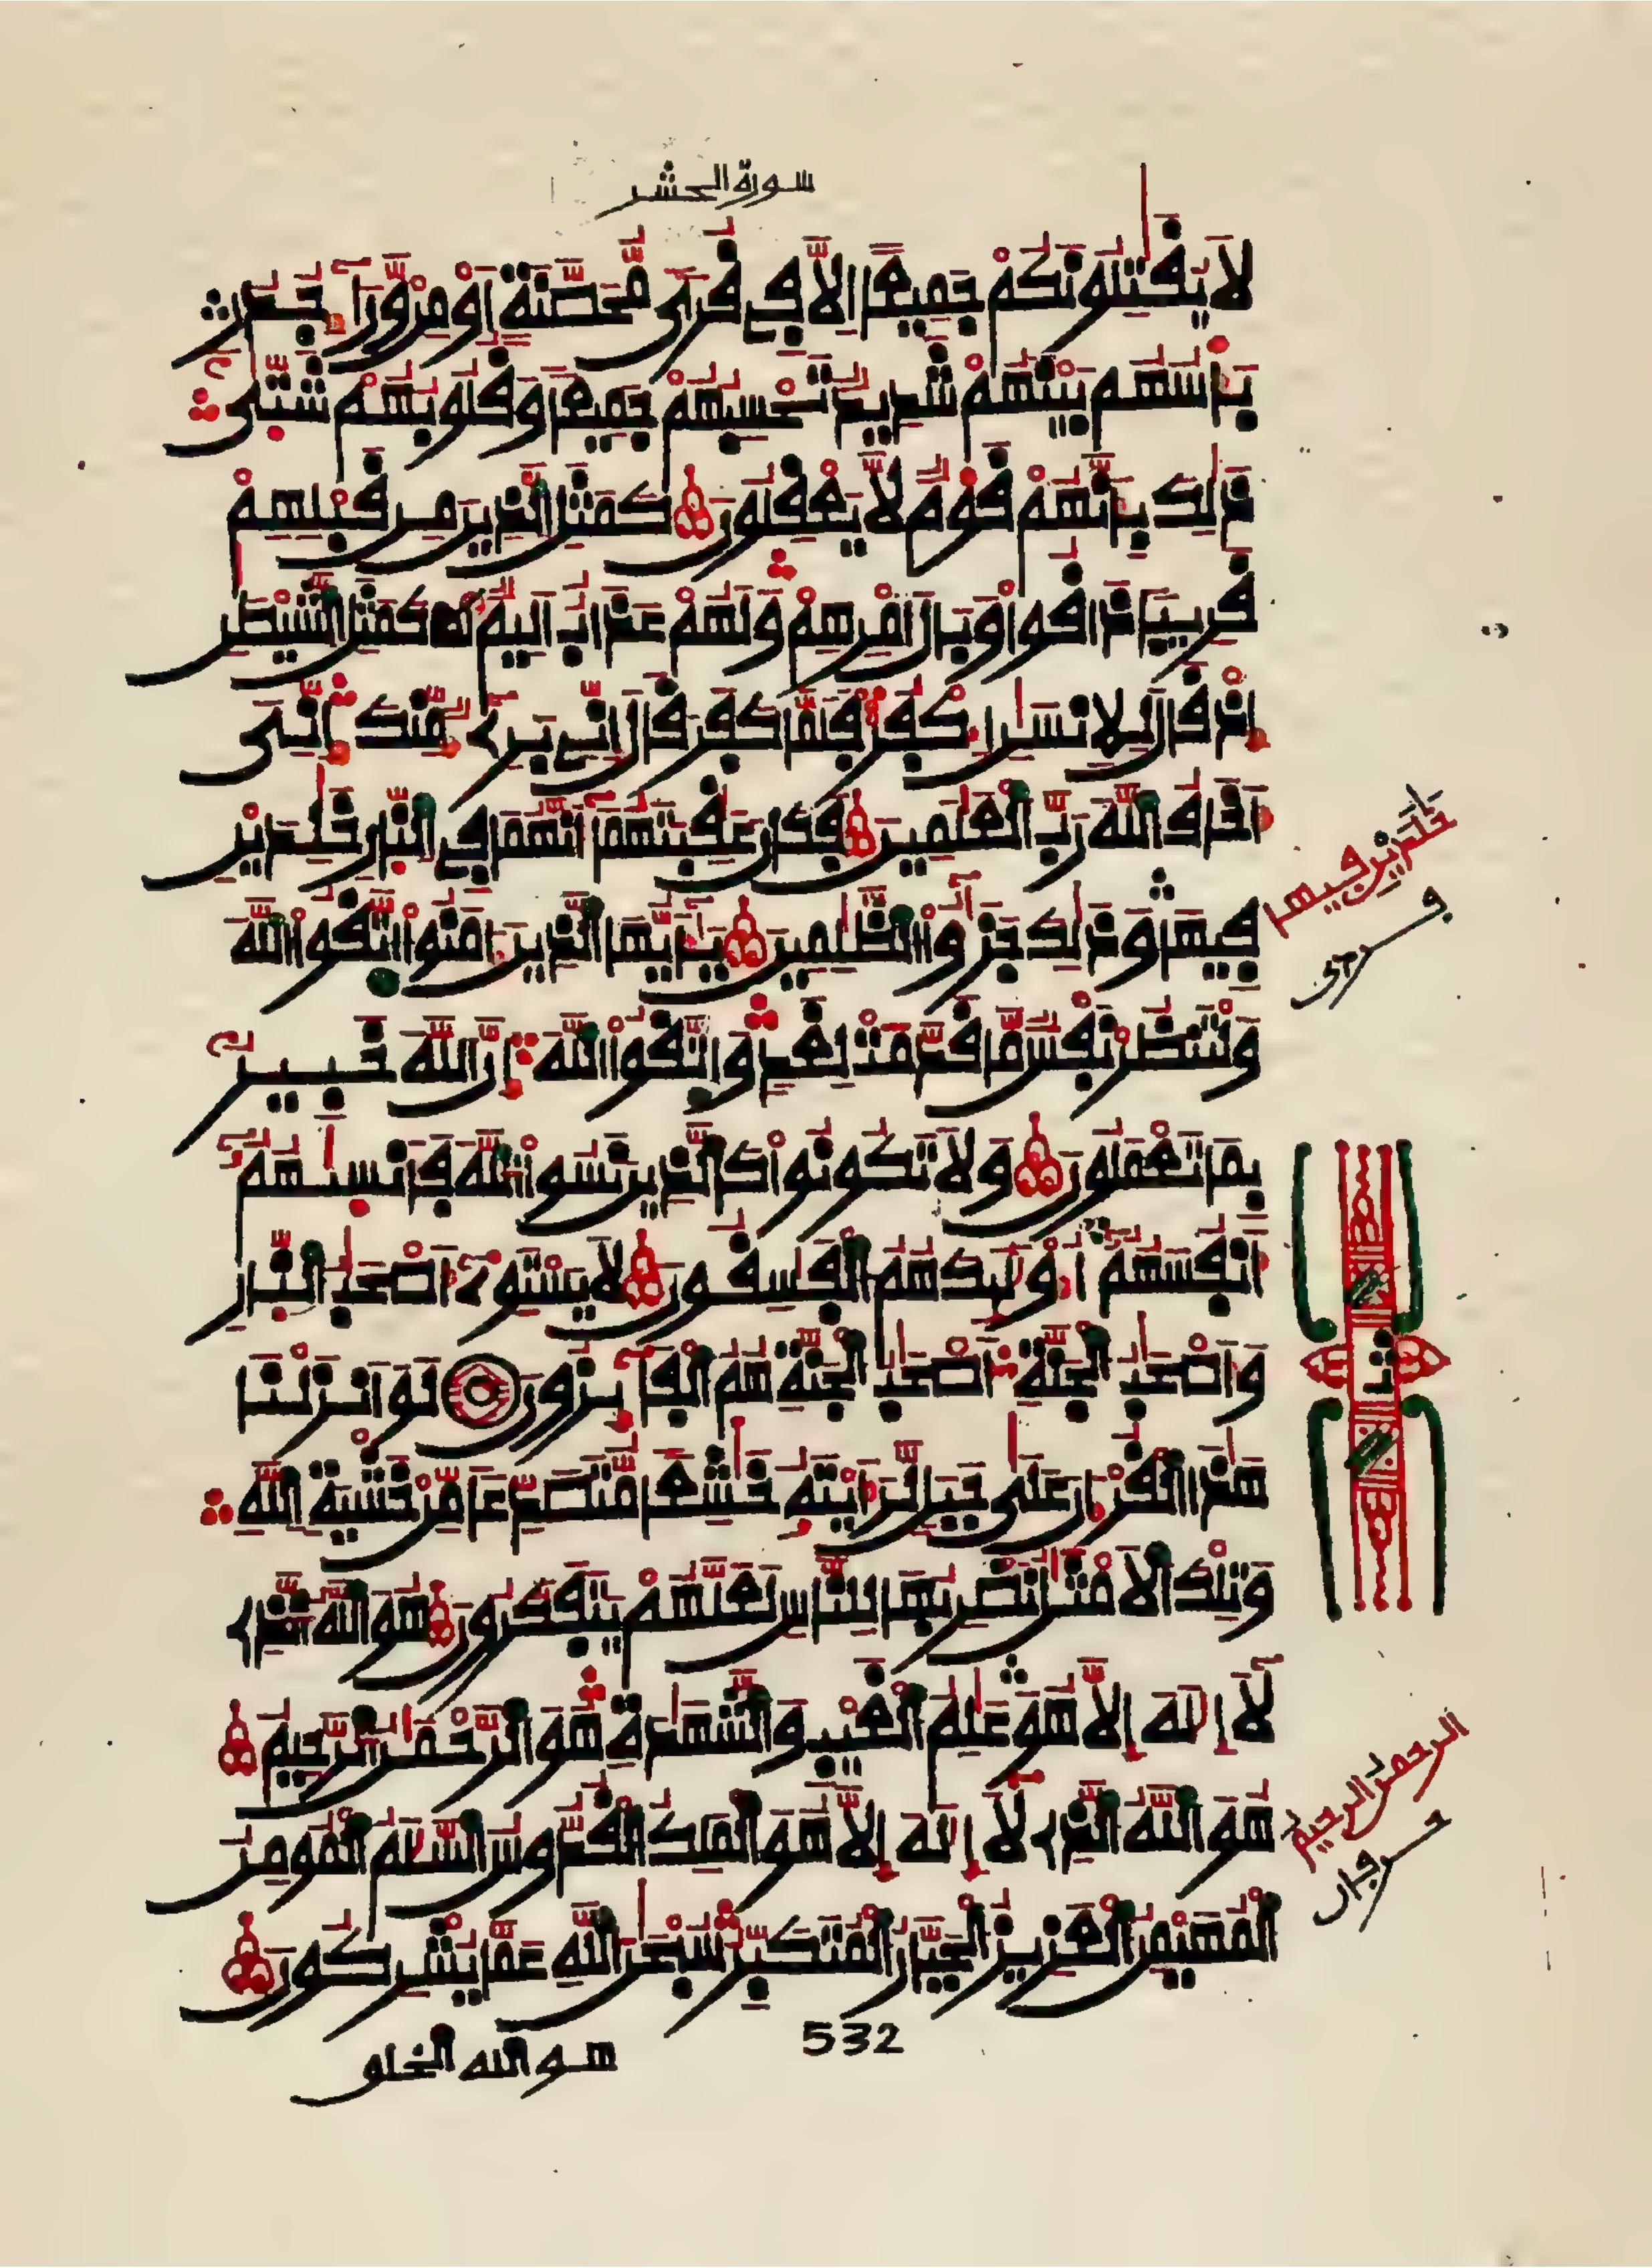 سورة الحشر
لَا يُقَٰتِلُونَكُمْ جَمِيعًا اِلَّا فِي قُرًى مُّحَصَّنَةٍ اَوْ مِنْ وَّرَآءِ جُدُرٍ
بَأْسُهُم بَيْنَهُمْ شَدِيدٌ تَحْسِبُهُمْ جَمِيعًا وَقُلُوبُهُمْ شَتّٰى
ذَٰلِكَ بِأَنَّهُمْ قَوْمٌ لَّا يَعْقِلُونَ كَمَثَلِ الَّذِينَ مِن قَبْلِهِمْ
قَرِيبًا ذَاقُوا وَبَالَ أَمْرِهِمْ وَلَهُمْ عَذَابٌ أَلِيمٌ كَمَثَلِ الشَّيْطَٰنِ
إِذْ قَالَ لِلْإِنسَٰنِ اكْفُرْ فَلَمَّا كَفَرَ قَالَ إِنِّي بَرِيءٌ مِّنكَ إِنِّيَ
أَخَافُ اللَّهَ رَبَّ الْعَٰلَمِينَ فَكَانَ عَٰقِبَتُهُمَا أَنَّهُمَا فِي النَّارِ خَٰلِدَيْنِ
فِيهَا وَذَٰلِكَ جَزَٰٓؤُا الظَّٰلِمِينَ يَٰٓأَيُّهَا الَّذِينَ ءَامَنُوا اتَّقُوا اللَّهَ
وَلْتَنظُرْ نَفْسٌ مَّا قَدَّمَتْ لِغَدٍ وَاتَّقُوا اللَّهَ إِنَّ اللَّهَ خَبِيرٌ
بِمَا تَعْمَلُونَ وَلَا تَكُونُوا كَالَّذِينَ نَسُوا اللَّهَ فَأَنسَىٰهُمْ
أَنفُسَهُمْ أُو۟لَٰٓئِكَ هُمُ الْفَٰسِقُونَ لَا يَسْتَوِي أَصْحَٰبُ النَّارِ
وَأَصْحَٰبُ الْجَنَّةِ أَصْحَٰبُ الْجَنَّةِ هُمُ الْفَآئِزُونَ لَوْ أَنزَلْنَا
هَٰذَا الْقُرْءَانَ عَلَىٰ جَبَلٍ لَّرَأَيْتَهُ خَٰشِعًا مُّتَصَدِّعًا مِّنْ خَشْيَةِ اللَّهِ
وَتِلْكَ الْأَمْثَٰلُ نَضْرِبُهَا لِلنَّاسِ لَعَلَّهُمْ يَتَفَكَّرُونَ هُوَ اللَّهُ الَّذِي
لَآ إِلَٰهَ إِلَّا هُوَ عَٰلِمُ الْغَيْبِ وَالشَّهَٰدَةِ هُوَ الرَّحْمَٰنُ الرَّحِيمُ
هُوَ اللَّهُ الَّذِي لَآ إِلَٰهَ إِلَّا هُوَ الْمَلِكُ الْقُدُّوسُ السَّلَٰمُ الْمُومِنُ
الْمُهَيْمِنُ الْعَزِيزُ الْجَبَّارُ الْمُتَكَبِّرُ سُبْحَٰنَ اللَّهِ عَمَّا يُشْرِكُونَ
532
هو الله الخلو
خلدين فيها
ثمن
الرحمن الرحيم